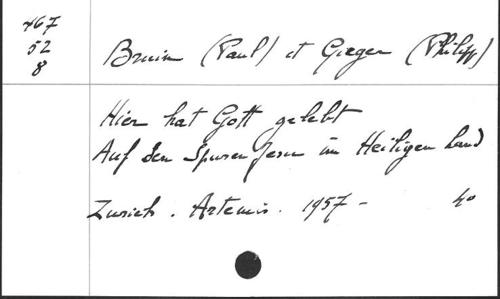 467
52
8
Bruin (Paul) et Gieger (Philipp)
Hier hat Gott gelebt
Auf den Spuren Jesu im Heiligen Land
Zurich. Artemis. 1957 - 4o